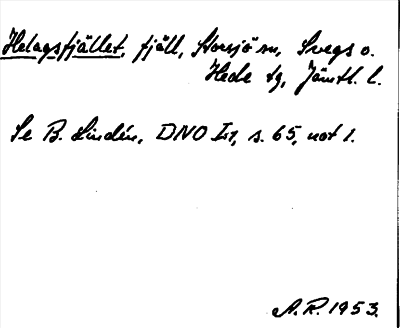 Helagsfjället, fjäll, Storsjö sn, Svegs o.
Hede tg, Jämtl. l.
Se B. Lindén, DNO I:1, s. 65, not 1.
A.R. 1953.